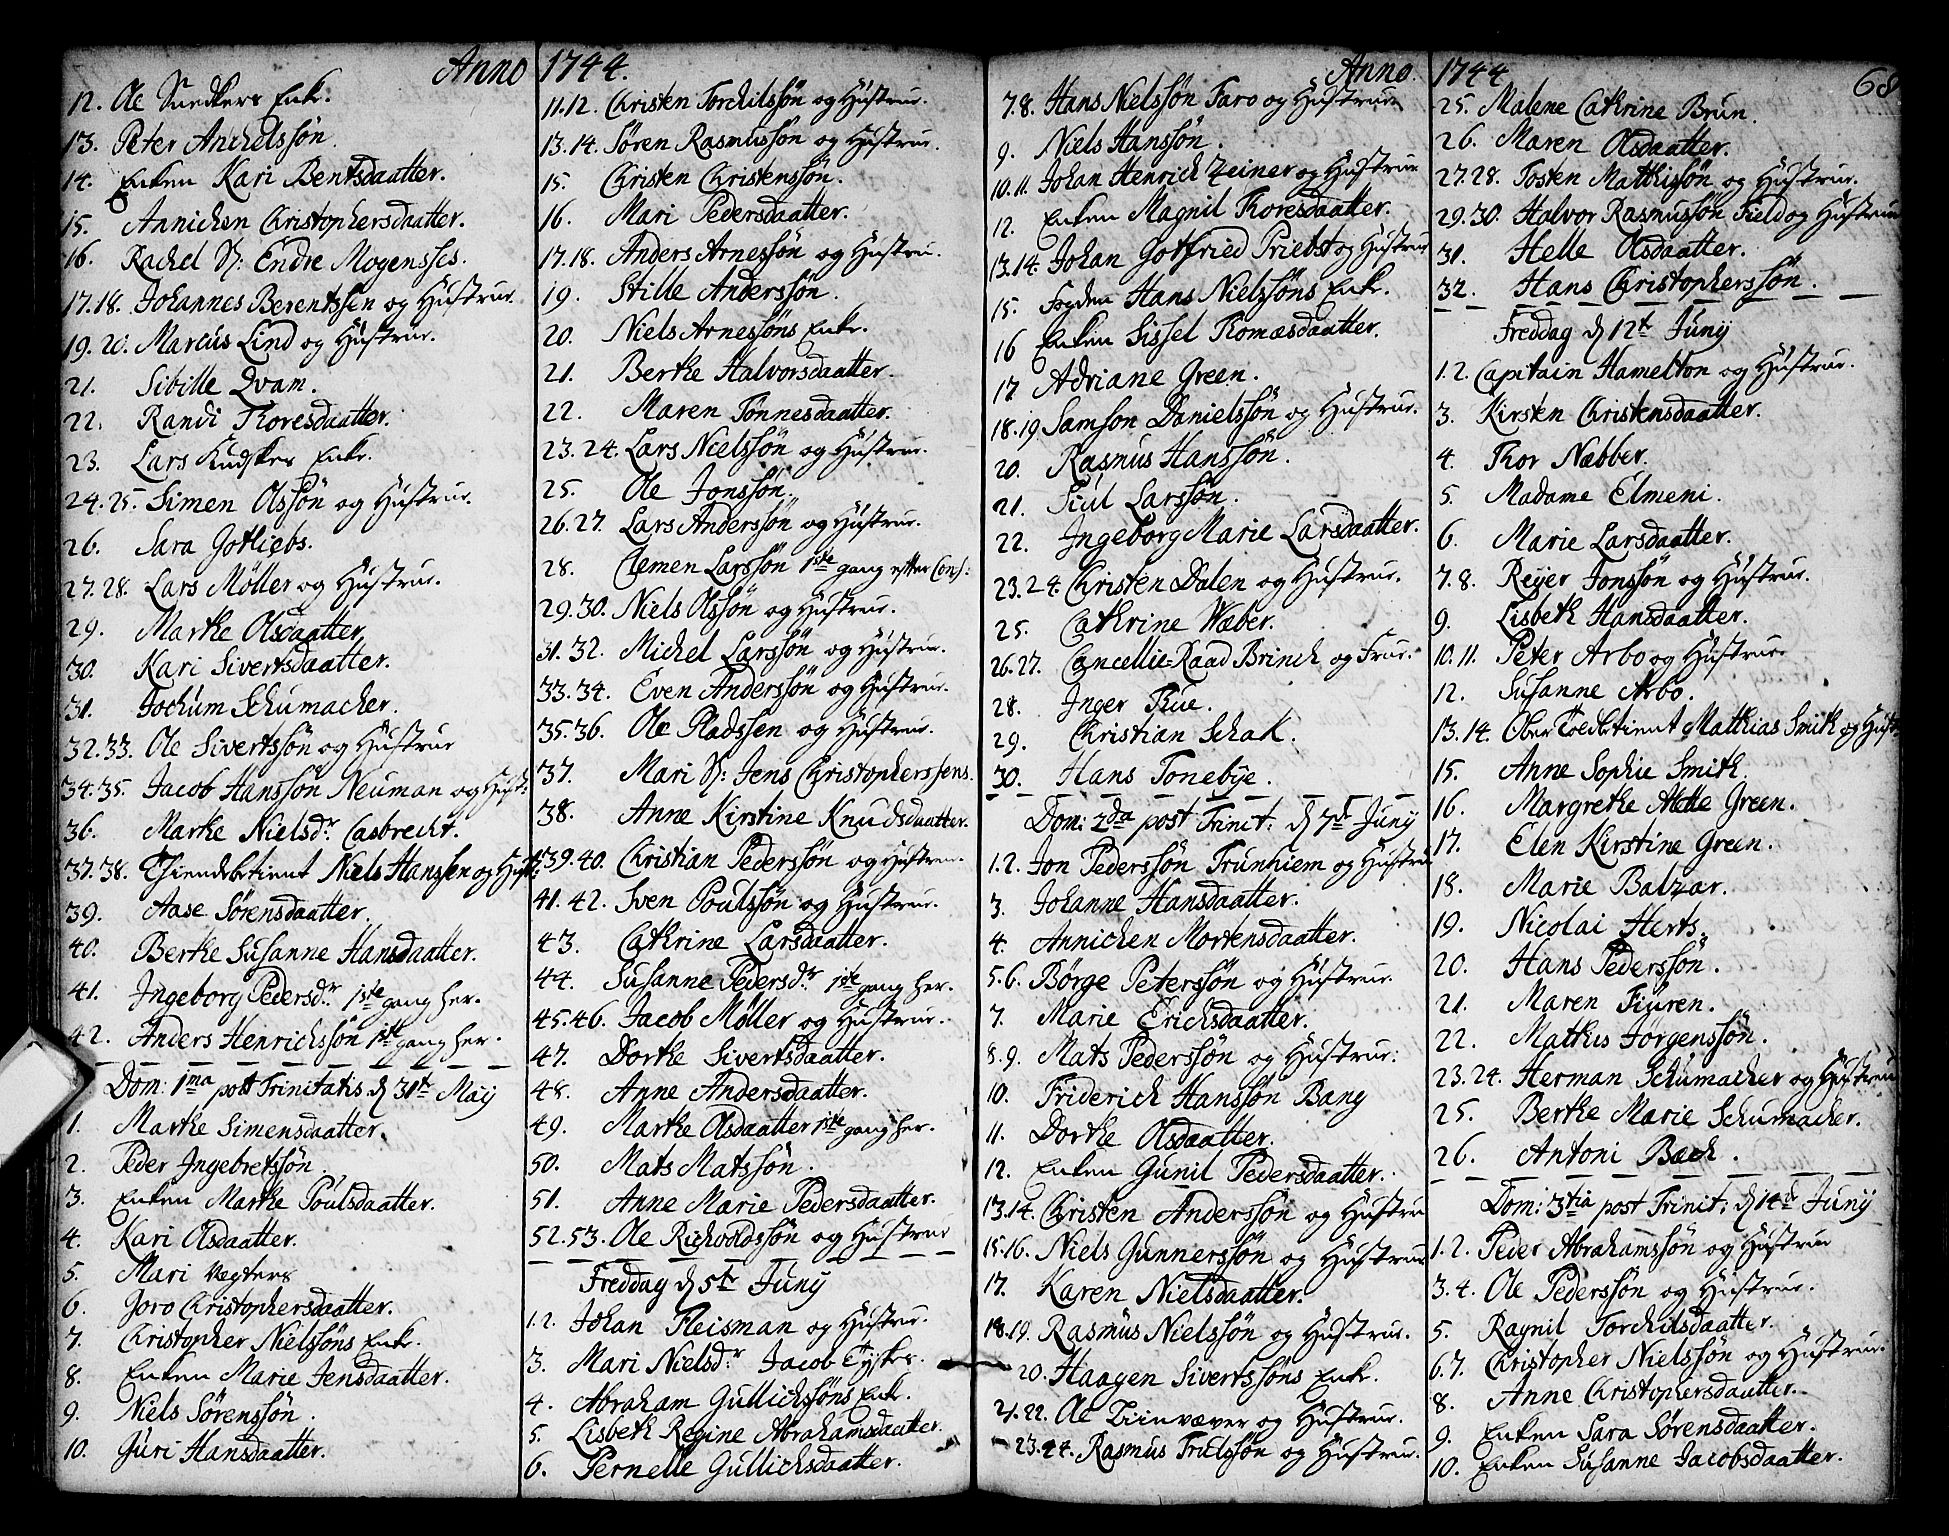 Anno 1744.
12. Ole Snedkers Enke.
13. Peter Anchelssön.
14. Enken Kari Bentsdaatter.
15. Annichen Christophersdaatter.
16. Rachel S: Endre Mogenses.
17.18. Johannes Berentssen og Hustrur.
19.20. Marcus Lind og Hustrur.
21. Sibille Qvam.
22. Randi Thoresdaatter.
23. Lars Kudskes Enke.
24.25. Simen Olssön og Hustrur.
26. Sara Gotliebs.
27.28. Lars Möller og Hustrur.
29. Marthe Olsdaatter
30. Kari Sivertsdaatter.
31. Jochum Schumacher.
32.33. Ole Sivertssön og Hustrur
34.35. Jacob Hanssön Neuman og Hust:
36. Marthe Nielsdr. Casbrecht.
37.38. Thiendebetient Niels Hanssen og Hust:
39. Aase Sörensdaatter.
40. Berthe Susanne Hansdaatter.
41. Ingeborg Pedersdr. 1ste gang her.
42. Anders Henrichssön 1ste gang her.
Dom: 1ma post Trinitatis d 31te Maij
1. Marthe Simensdaatter.
2. Peder Ingebretssön.
3. Enken Marthe Poulsdaatter.
4. Kari Olsdaatter.
5. Mari Vegters
6. Goro Christophersdaatter.
7. Christopher Nielssöns Enke.
8. Enken Marie Jensdaatter.
9. Niels Sörenssön.
10. Guri Hansdaatter.
11.12. Christen Torchilssön og Hustrur.
13.14. Sören Rasmussön og Hustrur.
15. Christen Christenssön.
16. Mari Pedersdaatter.
17.18. Anders Arnessön og Hustru.
19. Stille Anderssön.
20. Niels Arnessöns Enke.
21. Berthe Halvorsdaatter.
22. Maren Tönnesdaatter.
23.24. Lars Nielssön og Hustrur.
25. Ole Jonssön.
26.27. Lars Anderssön og Hustrur.
28. Clemen Larssön 1ste gang efter Conf:
29.30. Niels Olssön og Hustrur.
31.32. Michel Larssön og Hustrur.
33.34. Even Anderssön og Hustrur.
35.36. Ole Pladssen og Hustrur.
37. Mari S: Jens Christopherssens.
38. Anne Kirstine Knudsdaatter.
39.40. Christian Pederssön og Hustru.
41.42. Sven Poulssön og Hustrur.
43. Cathrine Larsdaatter.
44. Susanne Pedersdr. 1ste gang her.
45.46. Jacob Møller og Hustrur.
47. Dorthe Sivertsdaatter.
48. Anne Andersdaatter.
49. Marthe Olsdaatter 1ste gang her.
50. Mats Matssön.
51. Anne Marie Pedersdaatter.
52.53. Ole Richvoldssön og Hustrur
Freddag d 5te Junij
1.2. Johan Fleisman og Hustrur.
3. Mari Nielsdr. Jacob Tyskes.
4. Abraham Gullichssöns Enke.
5. Lisbeth Regine Abrahamsdaatter.
6. Pernelle Gullichsdaatter.
Anno 1744 68
7.8. Hans Nielssön Faro og Hustrur
9. Niels Hanssön.
10.11. Johan Henrich Zeiner og Hustrur
12. Enken Magnil Thoresdaatter.
13.14. Johan Gotfried Priebst og Hustrur
15. Fogden Hans Nielssöns Enke.
16 Enken Sissel Thomæsdaatter.
17 Adriane Green.
18.19 Samson Danielssön og Hustrur.
20. Rasmus Hanssön.
21. Siul Larssön.
22. Ingeborg Marie Larsdaatter.
23.24. Christen Dalen og Hustrur.
25. Cathrine Wæber.
26.27. Cancellie-Raad Brinch og Frue.
28. Inger Thue.
29. Christian Schak.
30. Hans Tonebye.
Dom: 2da post Trinit: d 7de Junij
1.2. Jon Pederssön Trunhiem og Hustru
3. Johanne Hansdaatter.
4. Annichen Mortensdaatter.
5.6. Börge Peterssön og Hustrur.
7. Marie Erichsdaatter.
8.9. Mats Pederssön og Hustrur:
10. Friderich Hanssön Bang
11. Dorthe Olsdaatter.
12. Enken Gunil Pedersdaatter.
13.14. Christen Anderssön og Hustru
15.16. Niels Gunnerssön og Hustrur
17. Karen Nielsdaatter.
18.19. Rasmus Nielssön og Hustrur.
20. Haagen Sivertssöns Enke.
21.22. Ole Liinvæver og Hustrur.
23.24. Rasmus Trulssön og Hustrur.
25. Malene Cathrine Brun.
26. Maren Olsdaatter.
27.28. Tosten Mathissön og Hustrur.
29.30. Halvor Rasmussön Field og Hustrur
31. Helle Olsdaatter.
32. Hans Christopherssön.
Freddag d 12te Junij
1.2. Capitain Hamelton og Hustrur.
3. Kirsten Christensdaatter.
4. Thor Næbber.
5. Madame Elmeni.
6. Marie Larsdaatter.
7.8. Reyer Jonssön og Hustrur.
9. Lisbeth Hansdaatter.
10.11. Peter Arbo og Hustrur.
12. Susanne Arbo.
13.14. Ober Toldbetient Matthias Smith og Hustr
15. Anne Sophie Smith.
16. Margrethe Mette Green.
17. Elen Kirstine Green.
18. Marie Balzar.
19. Nicolai Herts.
20. Hans Pederssön.
21. Maren Fiuren.
22. Mathis Jörgenssön.
23.24. Herman Schumacher og Hustrur
25. Berthe Marie Schumacher.
26. Antoni Bach.
Dom: 3tia post Trinit: d 14de Junij
1.2. Peder Abrahamssön og Hustrur
3.4. Ole Pederssön og Hustrur.
5. Ragnil Torchilsdaatter.
6.7. Christopher Nielssön og Hustrur.
8. Anne Christophersdaatter.
9. Enken Sara Sörensdaatter.
10. Enken Susanne Jacobsdaatter.